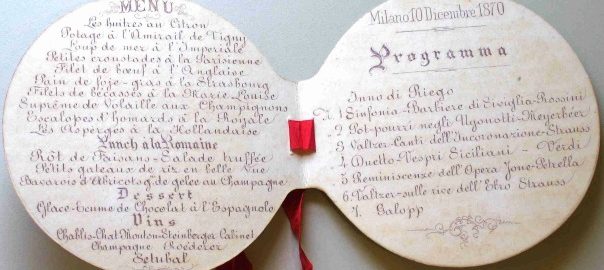 MENU
Les huîtres au Citron
Potage à l'Amirail de Vigny
Loup de mer à l'Impériale
Petites croustades à la Parisienne
Filet de bœuf à l'Anglaise
Pain de foie-gras à la Strasbourg
Filets de bécasses à la Marie-Louise
Suprême de Volaille aux Champignons
Escalopes d'homards à la Royale
Les Asperges à la Hollandaise
Punch à la Romaine
Rôt de Faisans-Salade truffée
Petits gateaux de riz en belle Vue
Bavarois d'Abricots & de gelée au Champagne
Dessert
Glace-Crème de Chocolat à l'Espagnole
Vins
Chablis-Chat Mouton-Steinberger Cabinet
Champagne Roederer
Setubal
Milano 10 Dicembre 1870
Programma
Inno di Riego
N. 1 Sinfonia-Barbiere di Siviglia-Rossini
" 2 Pot-pourri negli Ugonotti-Meyerbeer
" 3 Valtzer-Canti dell'Incoronazione-Strauss
" 4 Duetto-Vespri Siciliani - Verdi
" 5 Reminiscenze dell'Opera Jone-Petrella
" 6. Valtzer-sulle rive dell'Etro Strauss
" 7. Galopp